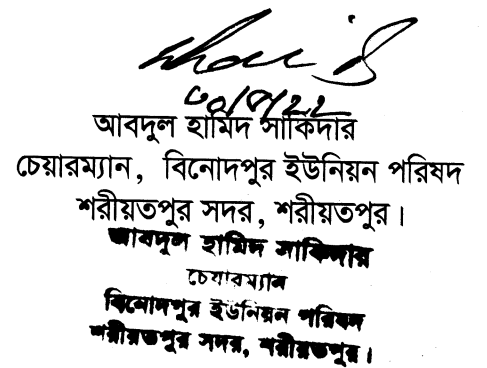 ৩০/৫/২২
আবদুল হামিদ সাকিদার
চেয়ারম্যান, বিনোদপুর ইউনিয়ন পরিষদ
শরীয়তপুর সদর, শরীয়তপুর।
আবদুল হামিদ সাকিদার
চেয়ারম্যান
বিনোদপুর ইউনিয়ন পরিষদ
শরীয়তপুর সদর, শরীয়তপুর।